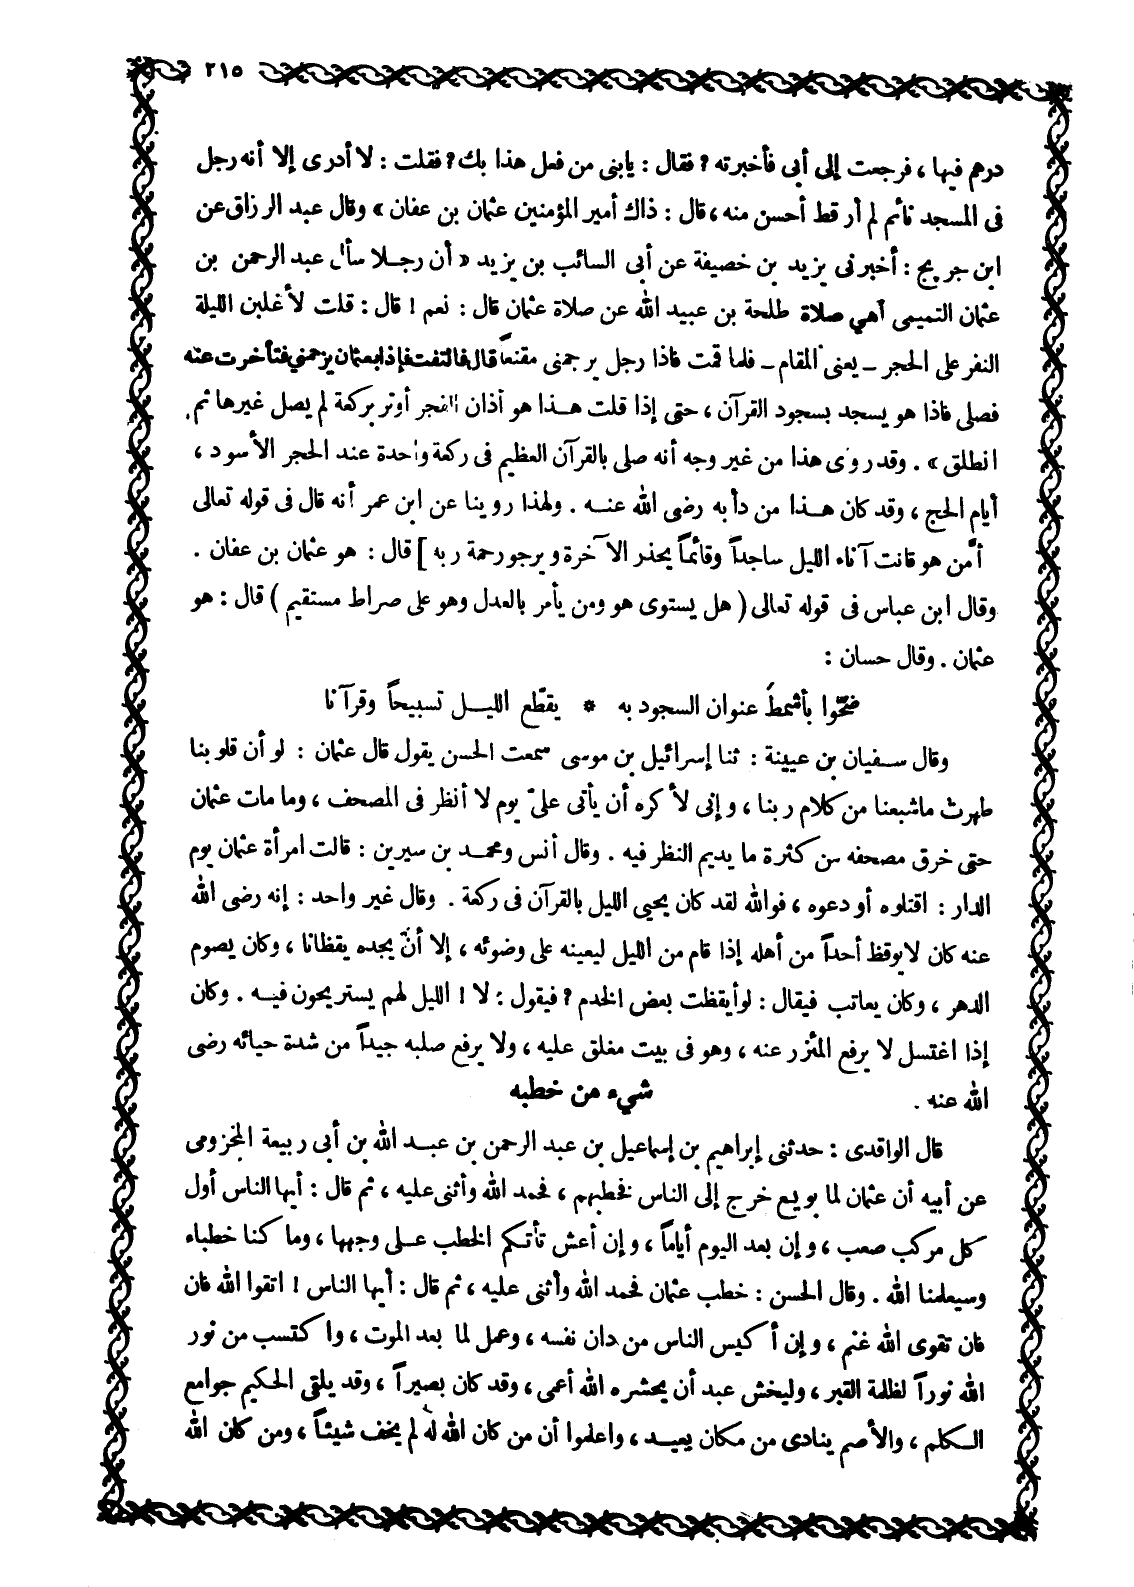 ٢١٥
درهم فيها ، فرجعت إلى أبى فأخبرته ? فقال : يابنى من فعل هذا بك ? فقلت : لا أدرى إلا أنه رجل
فى المسجد نائم لم أر قط أحسن منه ، قال : ذاك أمير المؤمنين عثمان بن عفان » وقال عبد الرزاق عن
ابن جريج : أخبرنى يزيد بن خصيفة عن أبى السائب بن يزيد « أن رجلا سأل عبد الرحمن بن
عثمان التميمى أهي صلاة طلحة بن عبيد الله عن صلاة عثمان قال : نعم ! قال : قلت لأغلبن الليلة
النفر على الحجر ــ يعنى المقام ــ فلما قمت فاذا رجل يرجمنى مقنعاً قال فالتفت فإذا بعثمان يزحمني فتأخرت عنه
فصلى فاذا هو يسجد بسجود القرآن ، حتى إذا قلت هـذا هو أذان الفجر أوتر بركعة لم يصل غيرها ثم
انطلق » . وقد روى هذا من غير وجه أنه صلى بالقرآن العظيم فى ركعة واحدة عند الحجر الأسود ،
أيام الحج ، وقد كان هـذا من دأبه رضى الله عنـه . ولهذا روينا عن ابن عمر أنه قال فى قوله تعالى
أمّن هو قانت آناء الليل ساجداً وقائماً يحذر الآخرة ويرجو رحمة ربه ] قال : هو عثمان بن عفان .
وقال ابن عباس فى قوله تعالى ( هل يستوى هو ومن يأمر بالعدل وهو على صراط مستقيم ) قال : هو
عثمان . وقال حسان :
ضحّوا بأشمطَ عنوان السجود به * يقطّع الليـل تسبيحاً وقرآنا
وقال سـفيان بن عيينة : ثنا إسرائيل بن موسى سمعت الحسن يقول قال عثمان : لو أن قلوبنا
طهرت ماشبعنا من كلام ربنا ، وإنى لأكره أن يأتى علىّ يوم لا أنظر فى المصحف ، وما مات عثمان
حتى خرق مصحفه من كثرة ما يديم النظر فيه . وقال أنس ومحمـد بن سيرين : قالت امرأة عثمان يوم
الدار : اقتلوه أو دعوه ، فوالله لقد كان يحيى الليل بالقرآن فى ركعة . وقال غير واحد : إنه رضى الله
عنه كان لايوقظ أحداً من أهله إذا قام من الليل ليعينه على وضوئه ، إلا أن يجده يقظانا ، وكان يصوم
الدهر ، وكان يعاتب فيقال : لو أيقظت بعض الخدم ? فيقول : لا ! الليل لهم يستريحون فيـه . وكان
إذا اغتسل لا يرفع المئزر عنه ، وهو فى بيت مغلق عليه ، ولا يرفع صلبه جيداً من شدة حيائه رضى
الله عنه .
شيء من خطبه
قال الواقدى : حدثنى إبراهيم بن إسماعيل بن عبد الرحمن بن عبـد الله بن أبى ربيعة المخزومى
عن أبيه أن عثمان لما بويع خرج إلى الناس فخطبهم ، فحمد الله وأثنى عليه ، ثم قال : أيها الناس أول
كل مركب صعب ، وإن بعد اليوم أياماً ، وإن أعش تأتـكم الخطب عـلى وجهها ، وما كنا خطباء
وسيعلمنا الله . وقال الحسن : خطب عثمان فحمد الله وأثنى عليه ، ثم قال : أيها الناس ! اتقوا الله فان
فان تقوى الله غنم ، وإن أكيس الناس من دان نفسه ، وعمل لما بعد الموت ، واكتسب من نور
الله نوراً لظلمة القبر ، وليخش عبد أن يحشره الله أعمى ، وقد كان بصيراً ، وقد يلقى الحكيم جوامع
الـكلم ، والأصم ينادى من مكان بعيـد ، واعلموا أن من كان الله له لم يخف شيئاً ، ومن كان الله